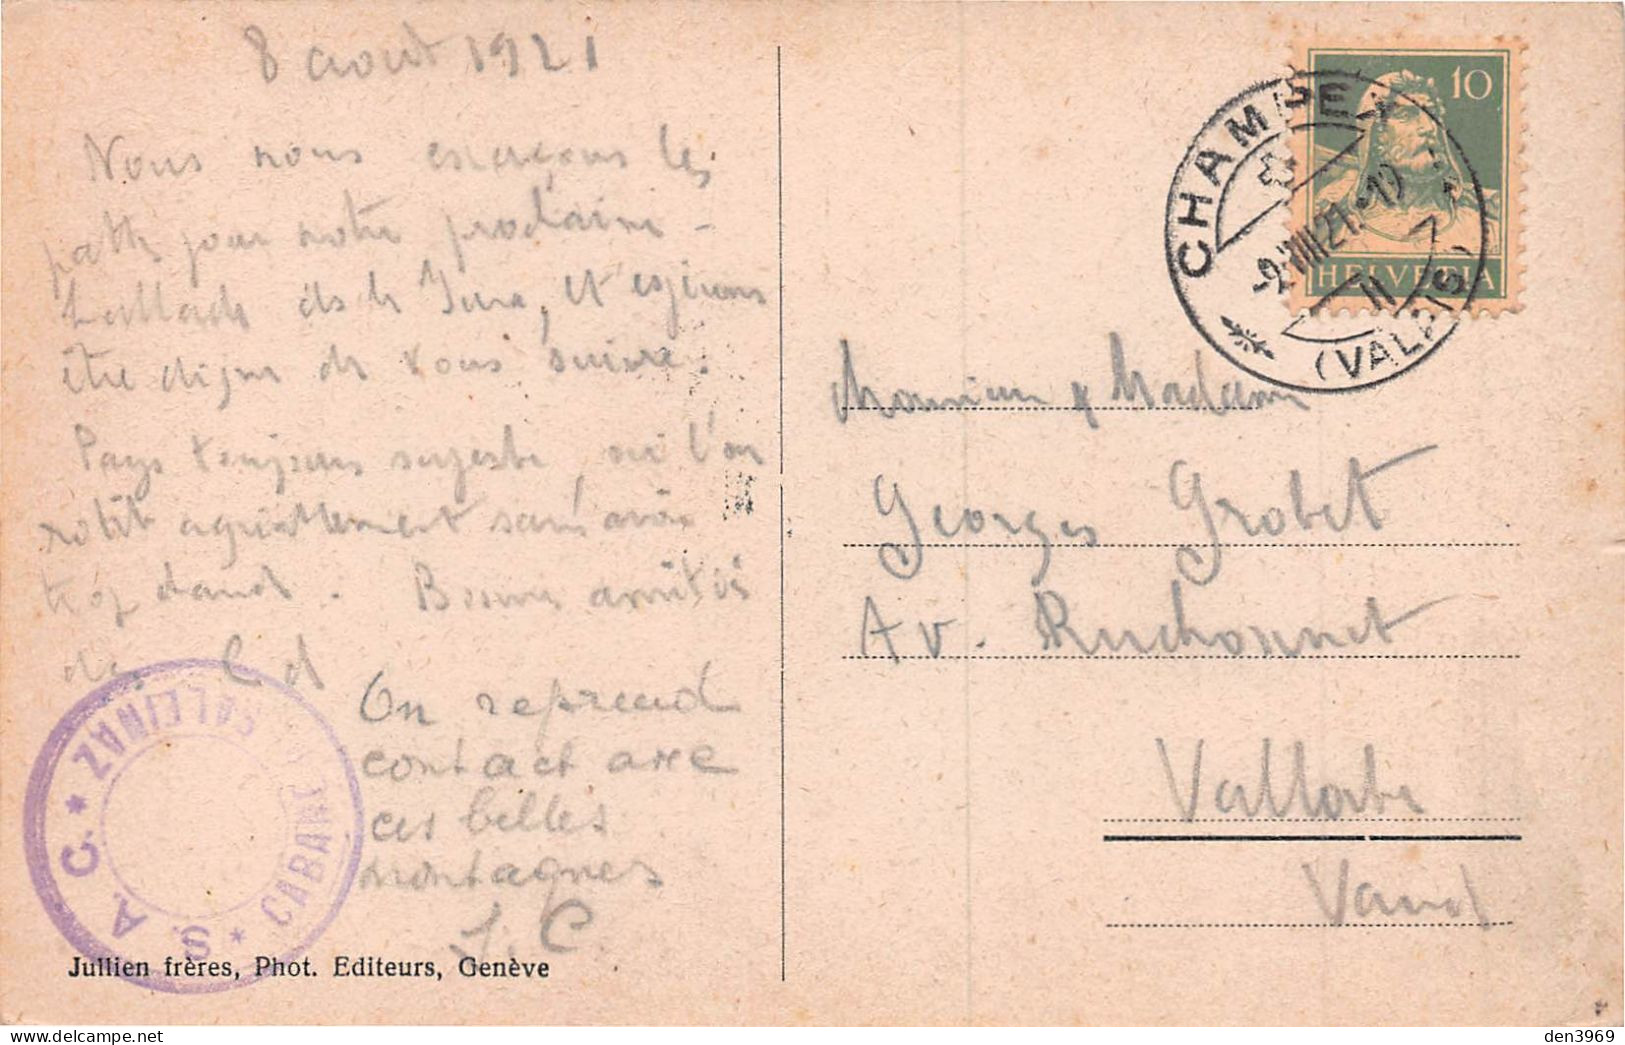 8 aout 1921
Nous nous exerçons les
pattes pour notre prochaine
ballade ds le Jura, et espérons
être digne de vous suivre.
Pays toujours superbe, où l'on
rôtit agréablement sans avoir
trop chaud. Bonnes amitiés
des C d
On reprend
contact avec
ces belles
montagnes
J. C.
S. A. C. * SALEINAZ * CABANE
Jullien frères, Phot. Editeurs, Genève
10
HELVETIA
CHAMPEX
-9.VIII.21.-19
II
(VALAIS)
Monsieur & Madame
Georges Grobet
Av. Ruchonnet
Vallorbe
Vaud
den3969